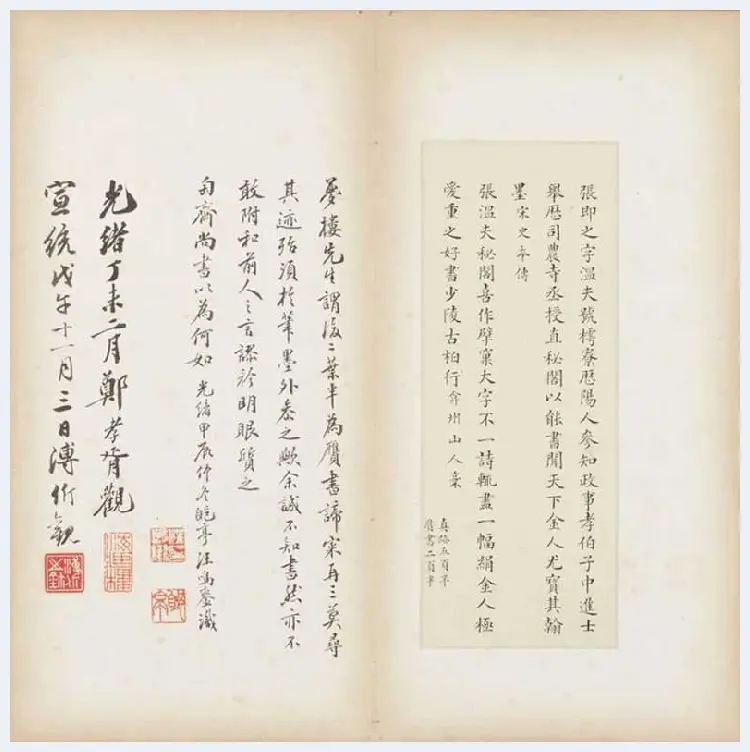 張即之字溫夫號樗寮歷陽人參知政事孝伯子中進士
舉歷司農寺丞授直秘閣以能書聞天下金人尤寶其翰
墨宋史本傳
張溫夫秘閣喜作擘窠大字不一詩輒盡一幅絹金人極
愛重之好書少陵古柏行弇州山人稾
真跡五百羊
贗書二百羊
夢樓先生謂後二葉半為贗書諦宷再三莫尋
其迹殆須於筆墨外叅之歟余誠不知書然亦不
敢附和前人之言謬矜明眼質之
匋齋尚書以為何如 光緒甲辰仲冬鮑亭汪鳴鑾識
光緒丁未二月鄭孝胥觀
宣統戊午十一月三日溥伒觀